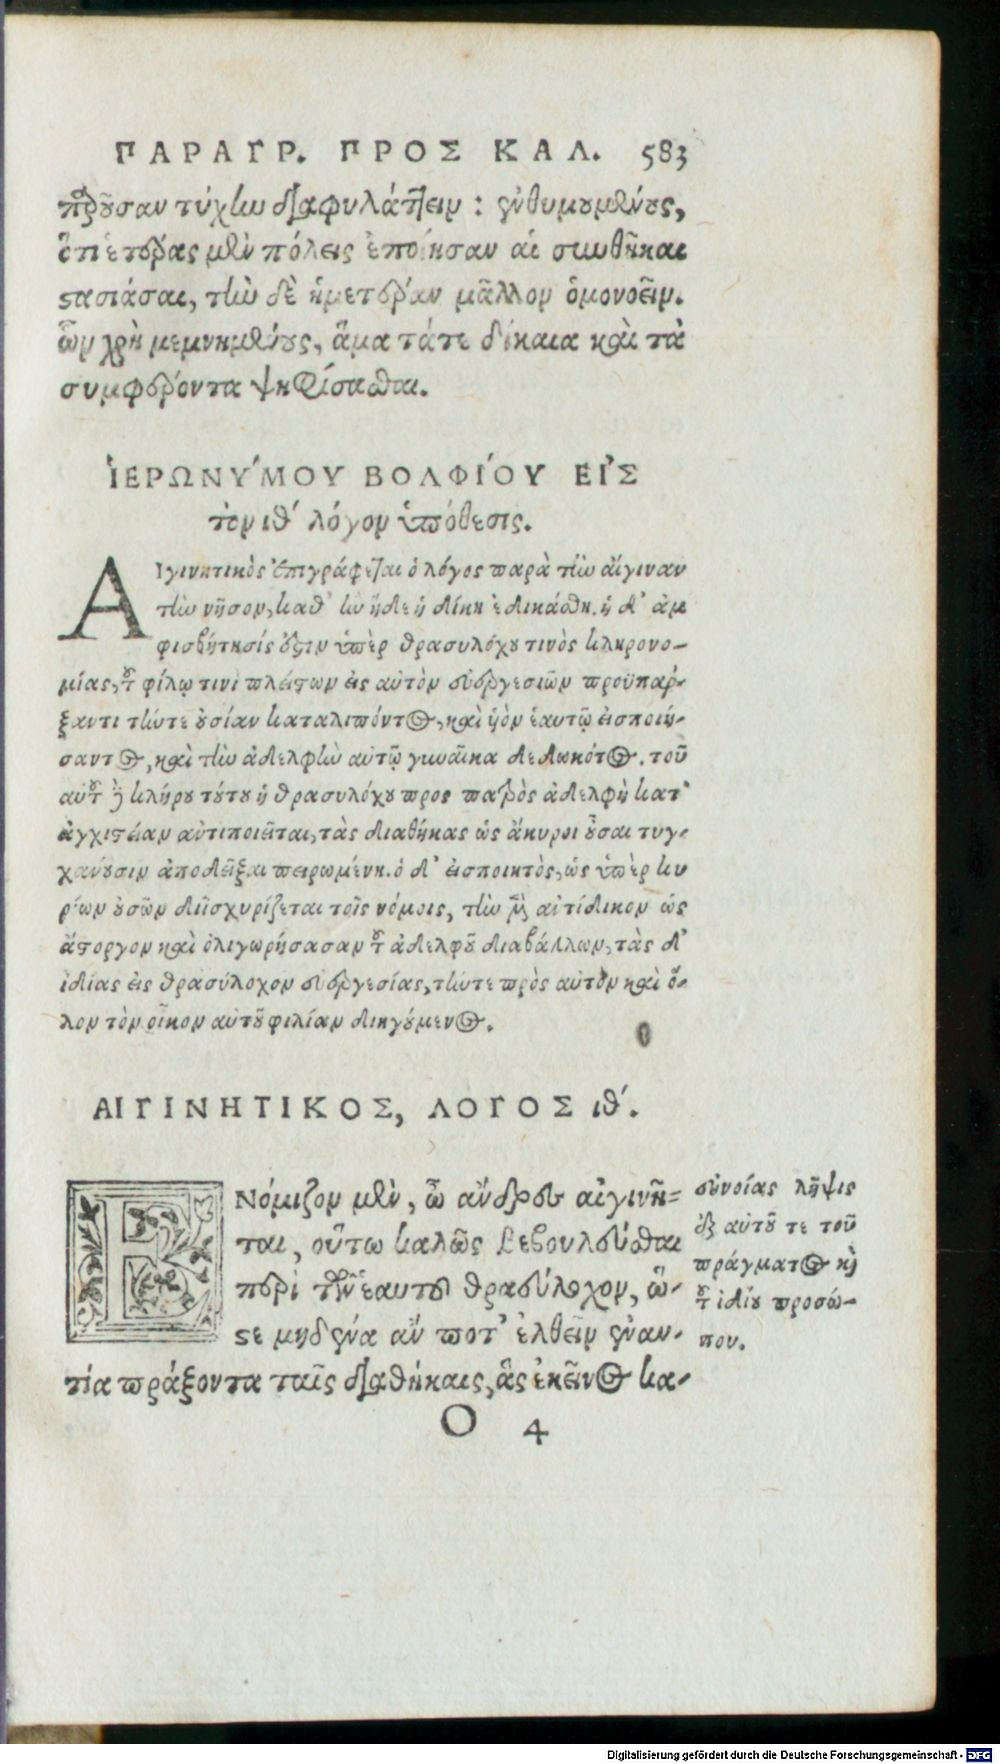 ΠΑΡΑΓΡ. ΠΡΟΣ ΚΑΛ. 583
παροῦσαν τύχην διαφυλάττειν: ἐνθυμουμένους,
ὅτι ἑτέρας μὲν πόλεις ἐποίησαν αἱ συνθῆκαι
στασιάσαι, τὴν δὲ ἡμετέραν μᾶλλον ὁμονοεῖν.
ὧν χρὴ μεμνημένους, ἅμα τά τε δίκαια καὶ τὰ
συμφέροντα ψηφίσασθαι.
ἹΕΡΩΝΥ΄ΜΟΥ ΒΟΛΦΙ΄ΟΥ ΕΙ᾿Σ
τὸν ιθ´ λόγον ὑπόθεσις.
ΑΙγινητικὸς ἐπιγράφεται ὁ λόγος παρὰ τὴν αἴγιναν
τὴν νῆσον, καθ᾿ ἣν ἥδε ἡ δίκη ἐδικάσθη. ἡ δ᾿ ἀμ
φισβήτησίς ἐστιν ὑπὲρ θρασυλόχου τινὸς κληρονο-
μίας, τοῦ φίλῳ τινὶ πλείστων εἰς αὐτὸν εὐεργεσιῶν προϋπάρ-
ξαντι τήν τε οὐσίαν καταλιπόντος, καὶ ὑὸν ἑαυτῷ εἰσποιή-
σαντος, καὶ τὴν ἀδελφὴν αὐτῷ γυναῖκα δεδωκότος. τοῦ
αὐτοῦ δὲ κλήρου τούτου ἡ θρασυλόχου προς πατρὸς ἀδελφὴ κατ᾿
ἀγχιστείαν ἀντιποιεῖται, τὰς διαθήκας ὡς ἄκυροι οὖσαι τυγ-
χάνουσιν ἀποδεῖξαι πειρωμένη. ὁ δ᾿ εἰσποιητὸς, ὡς ὑπὲρ κυ
ρίων οὐσῶν διϊσχυρίζεται τοῖς νόμοις, τὴν μὲν ἀντίδικον ὡς
ἄστοργον καὶ ὀλιγωρήσασαν τοῦ ἀδελφοῦ διαβάλλων, τὰς δ᾿
ἰδίας εἰς θρασύλοχον εὐεργεσίας, τήν τε πρὸς αὐτὸν καὶ ὅ-
λον τὸν οἶκον αὐτοῦ φιλίαν διηγούμενος.
ΑΙΓΙΝΗΤΙΚΟΣ, ΛΟΓΟΣ ιθ´.
ΕΝόμιζον μὲν, ὦ ἄνδρες αἰγινῆ-
ται, οὕτω καλῶς βεβουλεῦσθαι
περὶ τῶν ἑαυτοῦ θρασύλοχον, ὥ-
στε μηδένα ἄν ποτ᾿ ἐλθεῖν ἐναν-
τία πράξοντα ταῖς διαθήκαις, ἃς ἐκεῖνος κα-
εὐνοίας λῆψις
ἐξ αὐτοῦ τε τοῦ
πράγματος καὶ
τοῦ ἰδίου προσώ-
που.
O 4
Digitalisierung gefördert durch die Deutsche Forschungsgemeinschaft - DFG